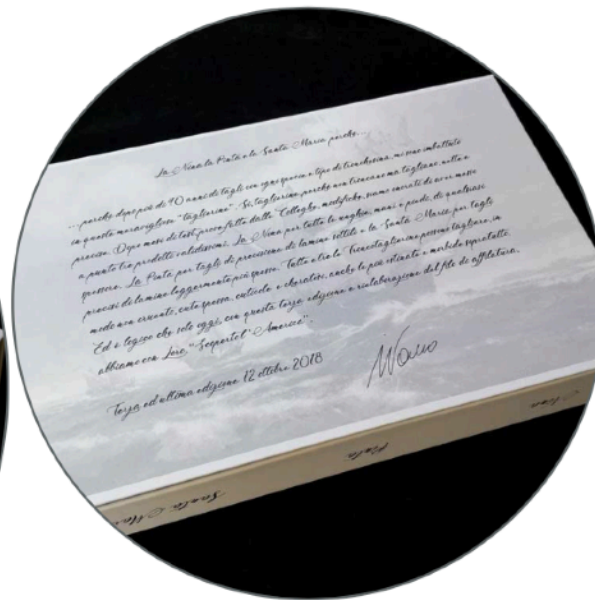 La Nina la Pinta e la Santa Maria perchè...
...perchè dopo più di 40 anni di tagli con ogni specie e tipo di tronchesina, mi sono imbattuto
in questa meravigliosa "taglierina". Sì, taglierina perchè non troncano ma tagliano, netto e
preciso. Dopo mesi di test-prova fatta dalle Colleghe, modifiche, siamo onorati di aver messo
a punto tre prodotti validissimi. La Nina per tutte le unghie, mani e piedi, di qualsiasi
spessore. La Pinta per tagli di precisione di lamine sottili e la Santa Maria per tagli
precisi di lamine leggermente più spesse. Tutte e tre le Troncataglierine possono tagliare, in
modo non cruento, cute spessa, cuticole e cheratosi, anche le più ostinate e morbide soprattutto.
Ed è logico che solo oggi, con questa terza edizione e rielaborazione del filo di affilatura,
abbiamo con Loro, "Scoperto l'America".
Terza ed ultima edizione 12 ottobre 2018
Santa Maria
Pinta
Nina